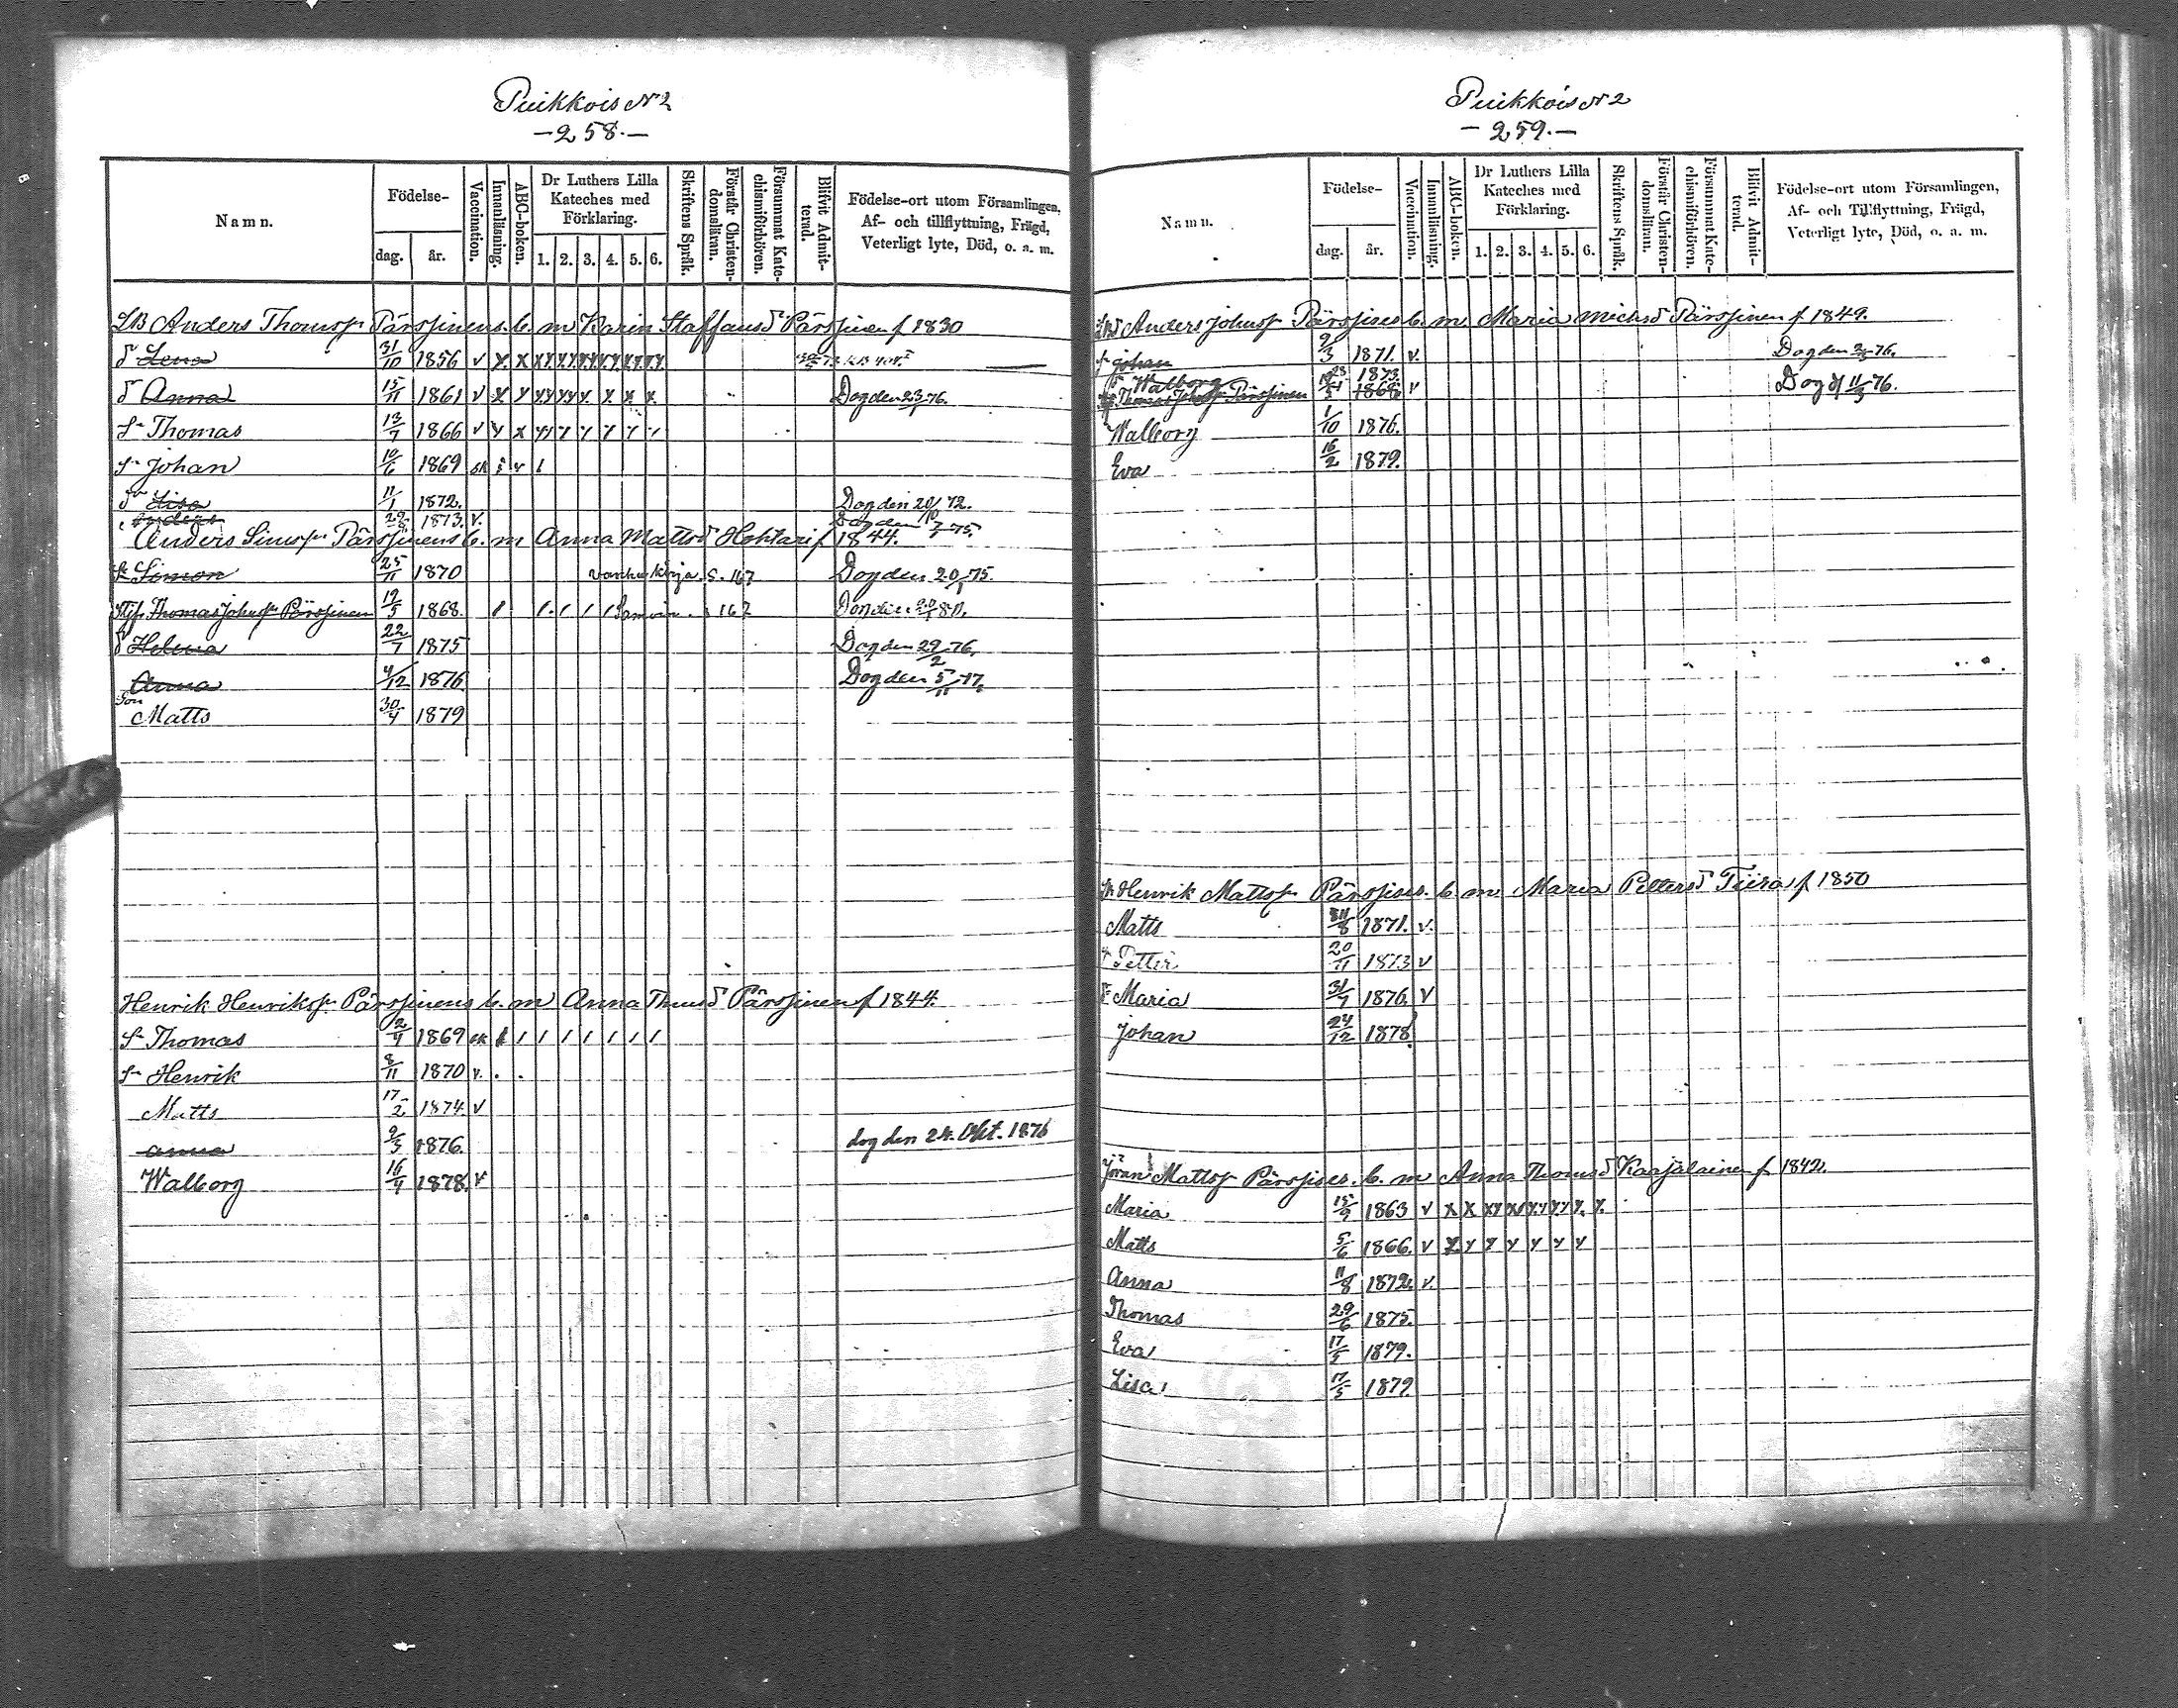 Puikkois N2
— 258. —
Namn.
Födelse-
dag. år.
Vaccination.
Innanläsning.
ABC-boken.
Dr Luthers Lilla
Kateches med
Förklaring.
1. 2. 3. 4. 5. 6.
Skriftens Språk.
Förstår Christen-
domsläran.
Försummat Kate-
chismiförhören.
Blifvit Admit-
terad.
Födelse-ort utom Församlingen,
Af- och tillflyttning, Frägd,
Veterligt lyte, Död, o. a. m.
Anders Thomsn Pärssinens b. m Karin Staffansd Pärssinen f 1830
d Lena 31/10 1856 v
d Anna 15/11 1861 v Dog den 23 76.
Sn Thomas 13/7 1866 v
Sn Johan 10/6 1869
d Lisa 11/1 1872. Dog den 20/ 72.
Anders 1873. v. Dog den 10/7 75.
Anders Simsn Pärssinens b. m Anna Mattsd Hohtari f 1844.
Simon 25/11 1870 vanha kirja s. 167 Dog den 20/ 75.
Thomas Johnsn Pärssinen 19/5 1868. 167 Dog den 80.
d Helena 22/7 1875 Dog den 29/2 76.
Anna 4/12 1876 Dog den 5/11 77.
Son
Matts 30/4 1879
Henrik Henriksn Pärssinens b. m Anna Thomsd Pärssinen f 1844.
Sn Thomas 2/4 1869
Sn Henrik 8/11 1870 v.
Matts 17/2 1874 v
Anna 9/5 1876. dog den 24. Okt. 1876
Walborg 16/4 1878. v
Puikkois N2
— 259. —
Namn.
Födelse-
dag. år.
Vaccination.
Innanläsning.
ABC-boken.
Dr Luthers Lilla
Kateches med
Förklaring.
1. 2. 3. 4. 5. 6.
Skriftens Språk.
Förstår Christen-
domsläran.
Försummat Kate-
chismiförhören.
Blifvit Admit-
terad.
Födelse-ort utom Församlingen,
Af- och Tillflyttning, Frägd,
Veterligt lyte, Död, o. a. m.
Anders Johnsn Pärssises b. m. Maria Michsd Pärssinen f 1849.
Sn Johan 9/3 1871. v. Dog den 76.
Walborg 1873.
Thomas Johnsn Pärssinen 1868 v Dog d 11/3 76.
Walborg 1/10 1876.
Eva 16/2 1879.
Henrik Mattsn Pärssises. b. m Maria Pettersd Tiira f 1850
Matts 1871. v.
Petter 20/11 1873 v
Maria 31/7 1876. v
Johan 24/12 1878.
Jöran Mattsn Pärssises. b. m Anna Thomsd Karjalainen f 1842.
Maria 15/9 1863 v
Matts 5/6 1866. v
Anna 11/8 1872. v.
Thomas 29/6 1875.
Eva 17/5 1879.
Lisa 17/5 1879